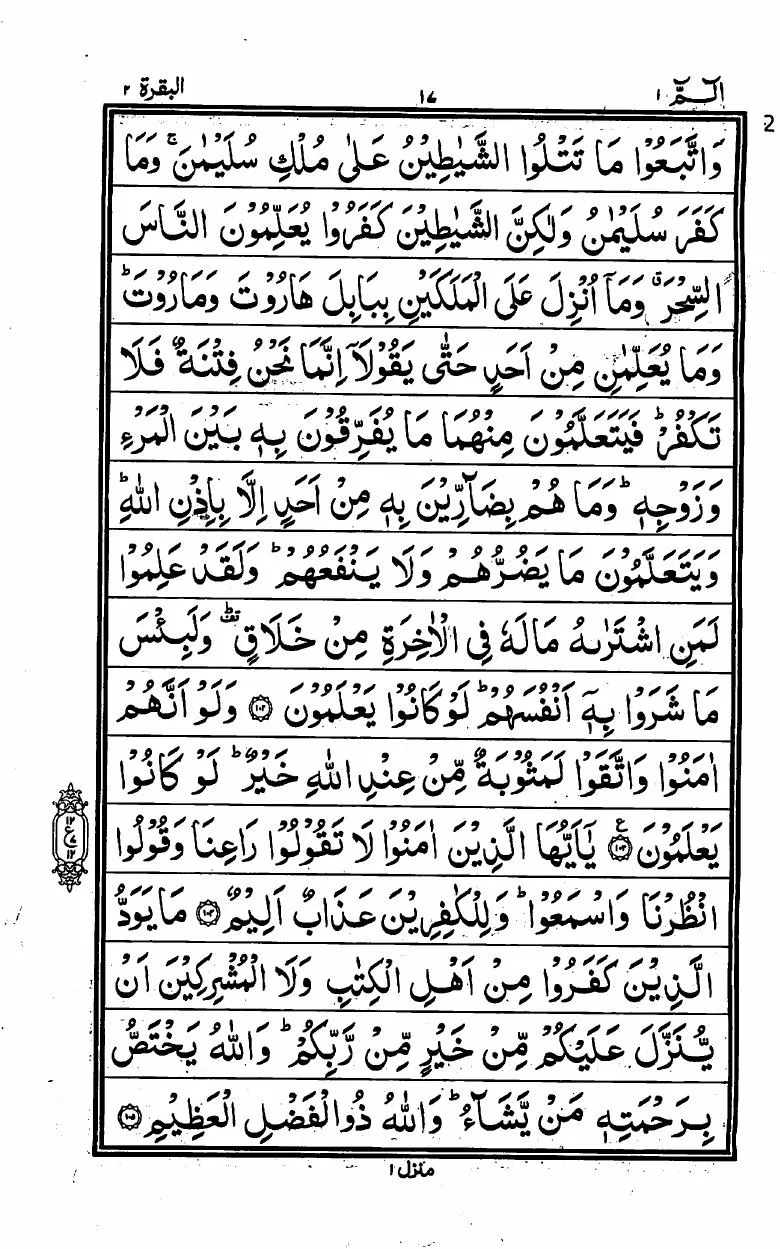 الٓمّٓ ١ ١٧ البقرة ٢
2
وَاتَّبَعُوْا مَا تَتْلُوا الشَّيٰطِيْنُ عَلٰى مُلْكِ سُلَيْمٰنَ ۚ وَمَا
كَفَرَ سُلَيْمٰنُ وَلٰكِنَّ الشَّيٰطِيْنَ كَفَرُوْا يُعَلِّمُوْنَ النَّاسَ
السِّحْرَ ۗ وَمَآ اُنْزِلَ عَلَى الْمَلَكَيْنِ بِبَابِلَ هَارُوْتَ وَمَارُوْتَ ؕ
وَمَا يُعَلِّمٰنِ مِنْ اَحَدٍ حَتّٰى يَقُوْلَآ اِنَّمَا نَحْنُ فِتْنَةٌ فَلَا
تَكْفُرْ ؕ فَيَتَعَلَّمُوْنَ مِنْهُمَا مَا يُفَرِّقُوْنَ بِهٖ بَيْنَ الْمَرْءِ
وَزَوْجِهٖ ؕ وَمَا هُمْ بِضَآرِّيْنَ بِهٖ مِنْ اَحَدٍ اِلَّا بِاِذْنِ اللّٰهِ ؕ
وَيَتَعَلَّمُوْنَ مَا يَضُرُّهُمْ وَلَا يَنْفَعُهُمْ ؕ وَلَقَدْ عَلِمُوْا
لَمَنِ اشْتَرٰىهُ مَالَهٗ فِى الْاٰخِرَةِ مِنْ خَلَاقٍ ۛ وَلَبِئْسَ
مَا شَرَوْا بِهٖٓ اَنْفُسَهُمْ ؕ لَوْ كَانُوْا يَعْلَمُوْنَ ۝١٠٢ وَلَوْ اَنَّهُمْ
اٰمَنُوْا وَاتَّقَوْا لَمَثُوْبَةٌ مِّنْ عِنْدِ اللّٰهِ خَيْرٌ ؕ لَوْ كَانُوْا
يَعْلَمُوْنَ ۝١٠٣ ع يٰٓاَيُّهَا الَّذِيْنَ اٰمَنُوْا لَا تَقُوْلُوْا رَاعِنَا وَقُوْلُوا
١٢ ع ٧ ١٢
انْظُرْنَا وَاسْمَعُوْا ؕ وَلِلْكٰفِرِيْنَ عَذَابٌ اَلِيْمٌ ۝١٠٤ مَا يَوَدُّ
الَّذِيْنَ كَفَرُوْا مِنْ اَهْلِ الْكِتٰبِ وَلَا الْمُشْرِكِيْنَ اَنْ
يُّنَزَّلَ عَلَيْكُمْ مِّنْ خَيْرٍ مِّنْ رَّبِّكُمْ ؕ وَاللّٰهُ يَخْتَصُّ
بِرَحْمَتِهٖ مَنْ يَّشَآءُ ؕ وَاللّٰهُ ذُو الْفَضْلِ الْعَظِيْمِ ۝١٠٥
منزل ١